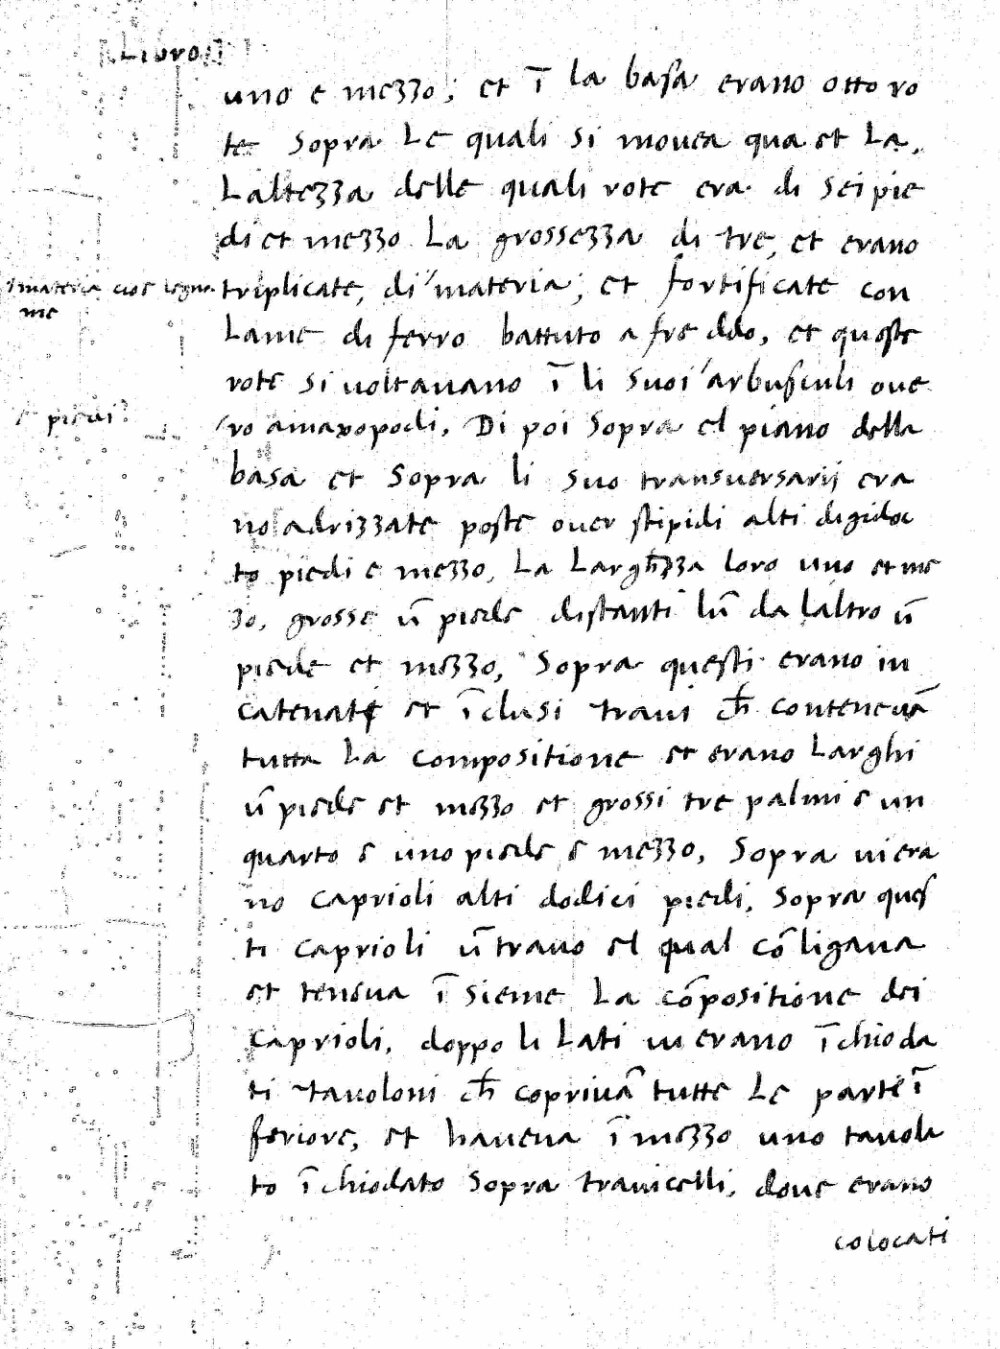 Libro
uno e mezzo; et ī la basa erano otto ro
te sopra le quali si mouea qua et la,
Laltezza delle quali rote era di sei pie
di et mezzo la grossezza di tre, et erano
materia cioe legna
me
triplicate, di materia, et fortificate con
Lame di ferro battuto a freddo, et queste
rote si uoltauano ī li suoi arbusculi oue
ro amaxopodi, Di poi sopra el piano della
basa et sopra li suo transuersarij era
no adrizzate poste ouer stipidi alti di gidoc
to piedi e mezzo, La Largh̄zza loro uno et me
zo, grosse ū piede distanti lū da laltro ū
piede et mezzo, Sopra questi erano in
catenati et īclusi traui ch̄ conteneuā
tutta la compositione et erano Larghi
ū piede et mezzo et grossi tre palmi e un
quarto e uno piede e mezzo, Sopra ui era
no Caprioli alti dodici piedi, Sopra ques
ti caprioli ū trauo el qual cōligaua
et teneua īsieme la cōpositione dei
Caprioli, doppo li Lati ui erano īchioda
ti tauoloni ch̄ copriuā tutte le parte ī
feriore, et haueua ī mezzo uno tauola
to īchiodato sopra trauicelli, doue erano
colocati